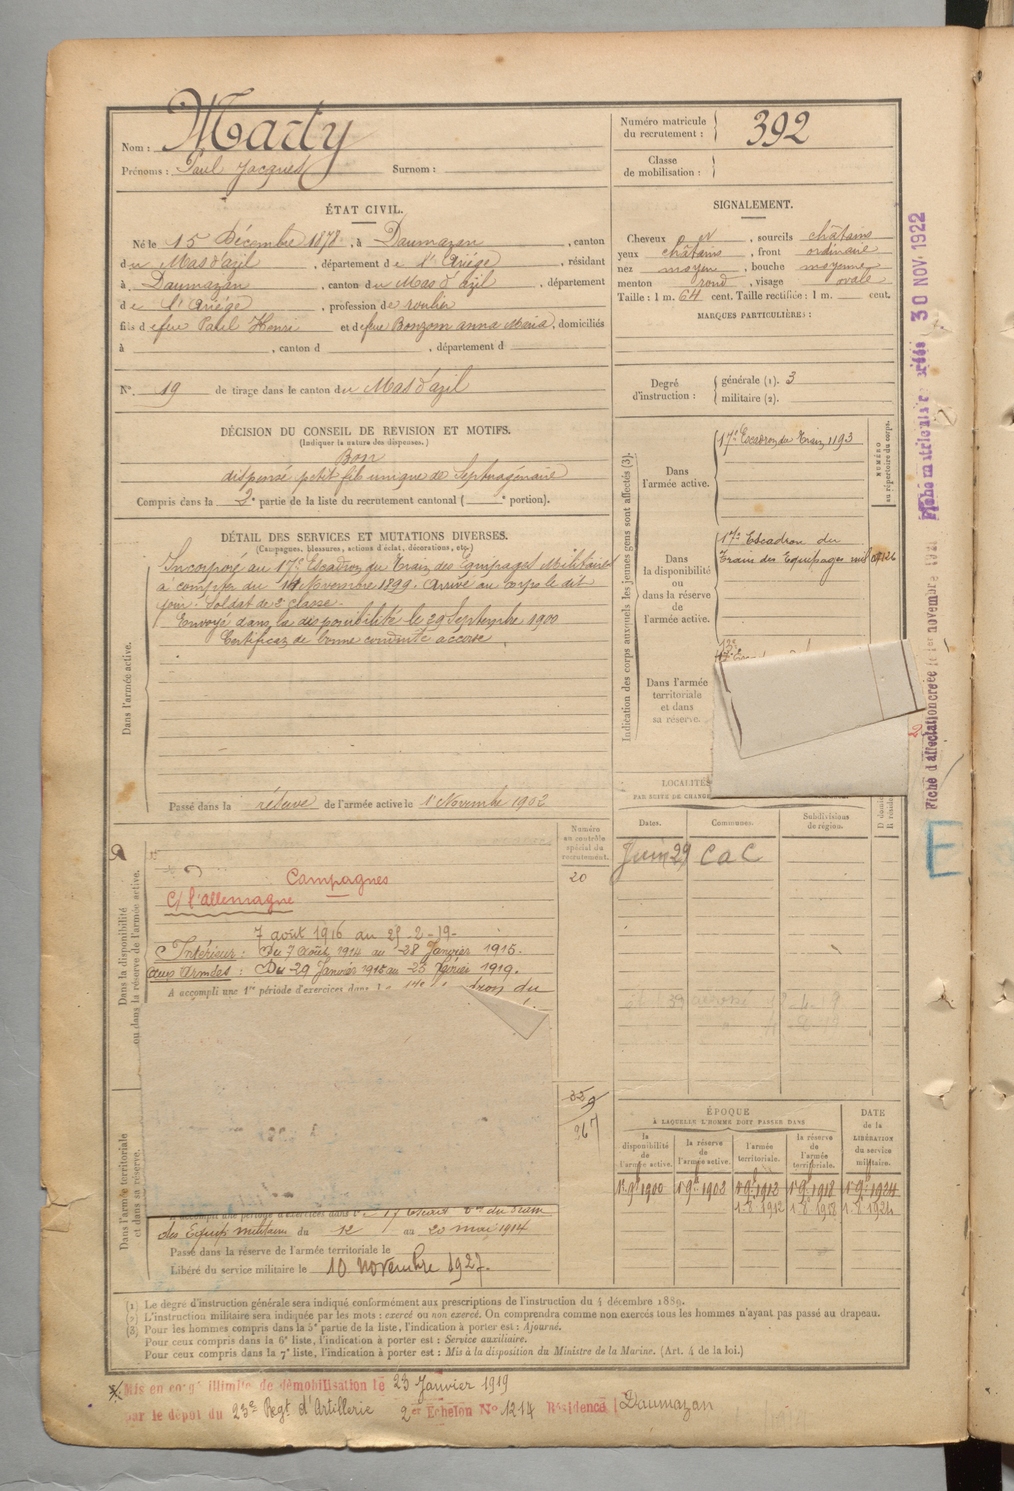 Nom : Marty
Prénoms : Paul Jacques Surnom :
Numéro matricule du recrutement : 392
Classe de mobilisation :
ÉTAT CIVIL.
Né le 15 Décembre 1878, à Daumazan, canton
du Mas d'azil, département de l'Ariége, résidant
à Daumazan, canton du Mas d'azil, département
de l'Ariége, profession de roulier
fils de feu Paul Henri et de feue Bonzom anna Maria, domiciliés
à , canton d , département d
N°. 19 de tirage dans le canton du Mas d'azil
SIGNALEMENT.
Cheveux , sourcils châtains
yeux châtains, front ordinaire
nez moyen, bouche moyenne
menton rond, visage ovale
Taille : 1 m. 64 cent. Taille rectifiée : 1 m. cent.
MARQUES PARTICULIÈRES :
Degré d'instruction : générale (1). 3
militaire (2).
DÉCISION DU CONSEIL DE REVISION ET MOTIFS.
(Indiquer la nature des dispenses.)
Bon
dispensé petit fils unique de Septuagénaire
Compris dans la 2e partie de la liste du recrutement cantonal ( e portion).
DÉTAIL DES SERVICES ET MUTATIONS DIVERSES.
(Campagnes, blessures, actions d'éclat, décorations, etc.)
Dans l'armée active.
Incorporé au 17e Escadron du Train des Equipages Militaires
à compter du 14 Novembre 1899. Arrivé au corps le dit
jour. Soldat de 2e classe.
Envoyé dans la disponibilité le 29 Septembre 1900
Certificat de bonne conduite accordé.
Passé dans la réserve de l'armée active le 1er Novembre 1902
Indication des corps auxquels les jeunes gens sont affectés (3).
NUMÉRO au répertoire du corps.
Dans l'armée active.
17e Escadron du Train 1193
Dans la disponibilité ou dans la réserve de l'armée active.
17e Escadron du
Train des Equipages mil
Dans l'armée territoriale et dans sa réserve.
LOCALITÉS
PAR SUITE DE CHANGE
Dates. Communes. Subdivisions de région. D domicile R résidence
Juin 29 CaC
Dans la disponibilité ou dans la réserve de l'armée active.
Numéro au contrôle spécial du recrutement.
20
Campagnes
C/ l'allemagne
7 août 1916 au 25-2-19-
Intérieur : Du 7 Août 1914 au 28 Janvier 1915.
aux Armées : Du 29 Janvier 1915 au 23 février 1919.
A accompli une 1re période d'exercices dans le 17e
du
Dans l'armée territoriale et dans sa réserve.
A accompli une période d'exercices dans le 17 du Train
des Equip militaires du 12 au 20 mai 1914
Passé dans la réserve de l'armée territoriale le
Libéré du service militaire le 10 novembre 1927.
ÉPOQUE
À LAQUELLE L'HOMME DOIT PASSER DANS
la disponibilité de l'armée active. la réserve de l'armée active. l'armée territoriale. la réserve de l'armée territoriale. DATE de la LIBÉRATION du service militaire.
1er 9bre 1900 1er 9bre 1902 1er 9bre 1912 1er 9bre 1918 1er 9bre 1924
1.8bre 1912 1.8bre 1918 1.8bre 1924
(1) Le degré d'instruction générale sera indiqué conformément aux prescriptions de l'instruction du 4 décembre 1889.
(2) L'instruction militaire sera indiquée par les mots : exercé ou non exercé. On comprendra comme non exercés tous les hommes n'ayant pas passé au drapeau.
(3) Pour les hommes compris dans la 5e partie de la liste, l'indication à porter est : Ajourné.
Pour ceux compris dans la 6e liste, l'indication à porter est : Service auxiliaire.
Pour ceux compris dans la 7e liste, l'indication à porter est : Mis à la disposition du Ministre de la Marine. (Art. 4 de la loi.)
Mis en congé illimité de démobilisation le 23 Janvier 1919
par le dépôt du 23e Regt d'Artillerie 2er Echelon No 1214 Résidence Daumazan
Fiche d'affectation créée le 1er novembre 1921
Fiche matriculaire créée 30 NOV. 1922
E